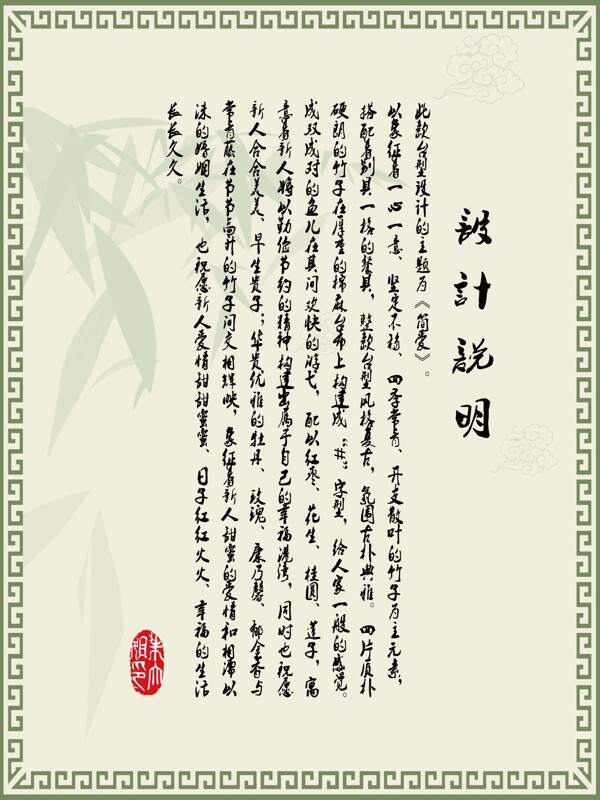 設計說明
此款台型设计的主题为《简爱》。
以象征着一心一意、坚定不移、四季常青、开支散叶的竹子为主元素，
搭配着别具一格的餐具，整款台型风格复古，氛围古朴典雅。四片质朴
硬朗的竹子在厚重的棉麻台布上构造成“井”字型，给人家一般的感觉。
成双成对的鱼儿在其间欢快的游弋，配以红枣、花生、桂圆、莲子，寓
意着新人将以勤俭节约的精神构造出属于自己的幸福港湾，同时也祝愿
新人合合美美、早生贵子；华贵优雅的牡丹、玫瑰、康乃馨、郁金香与
常青藤在节节高升的竹子间交相辉映，象征着新人甜蜜的爱情和相濡以
沫的婚姻生活，也祝愿新人爱情甜甜蜜蜜、日子红红火火、幸福的生活
长长久久。